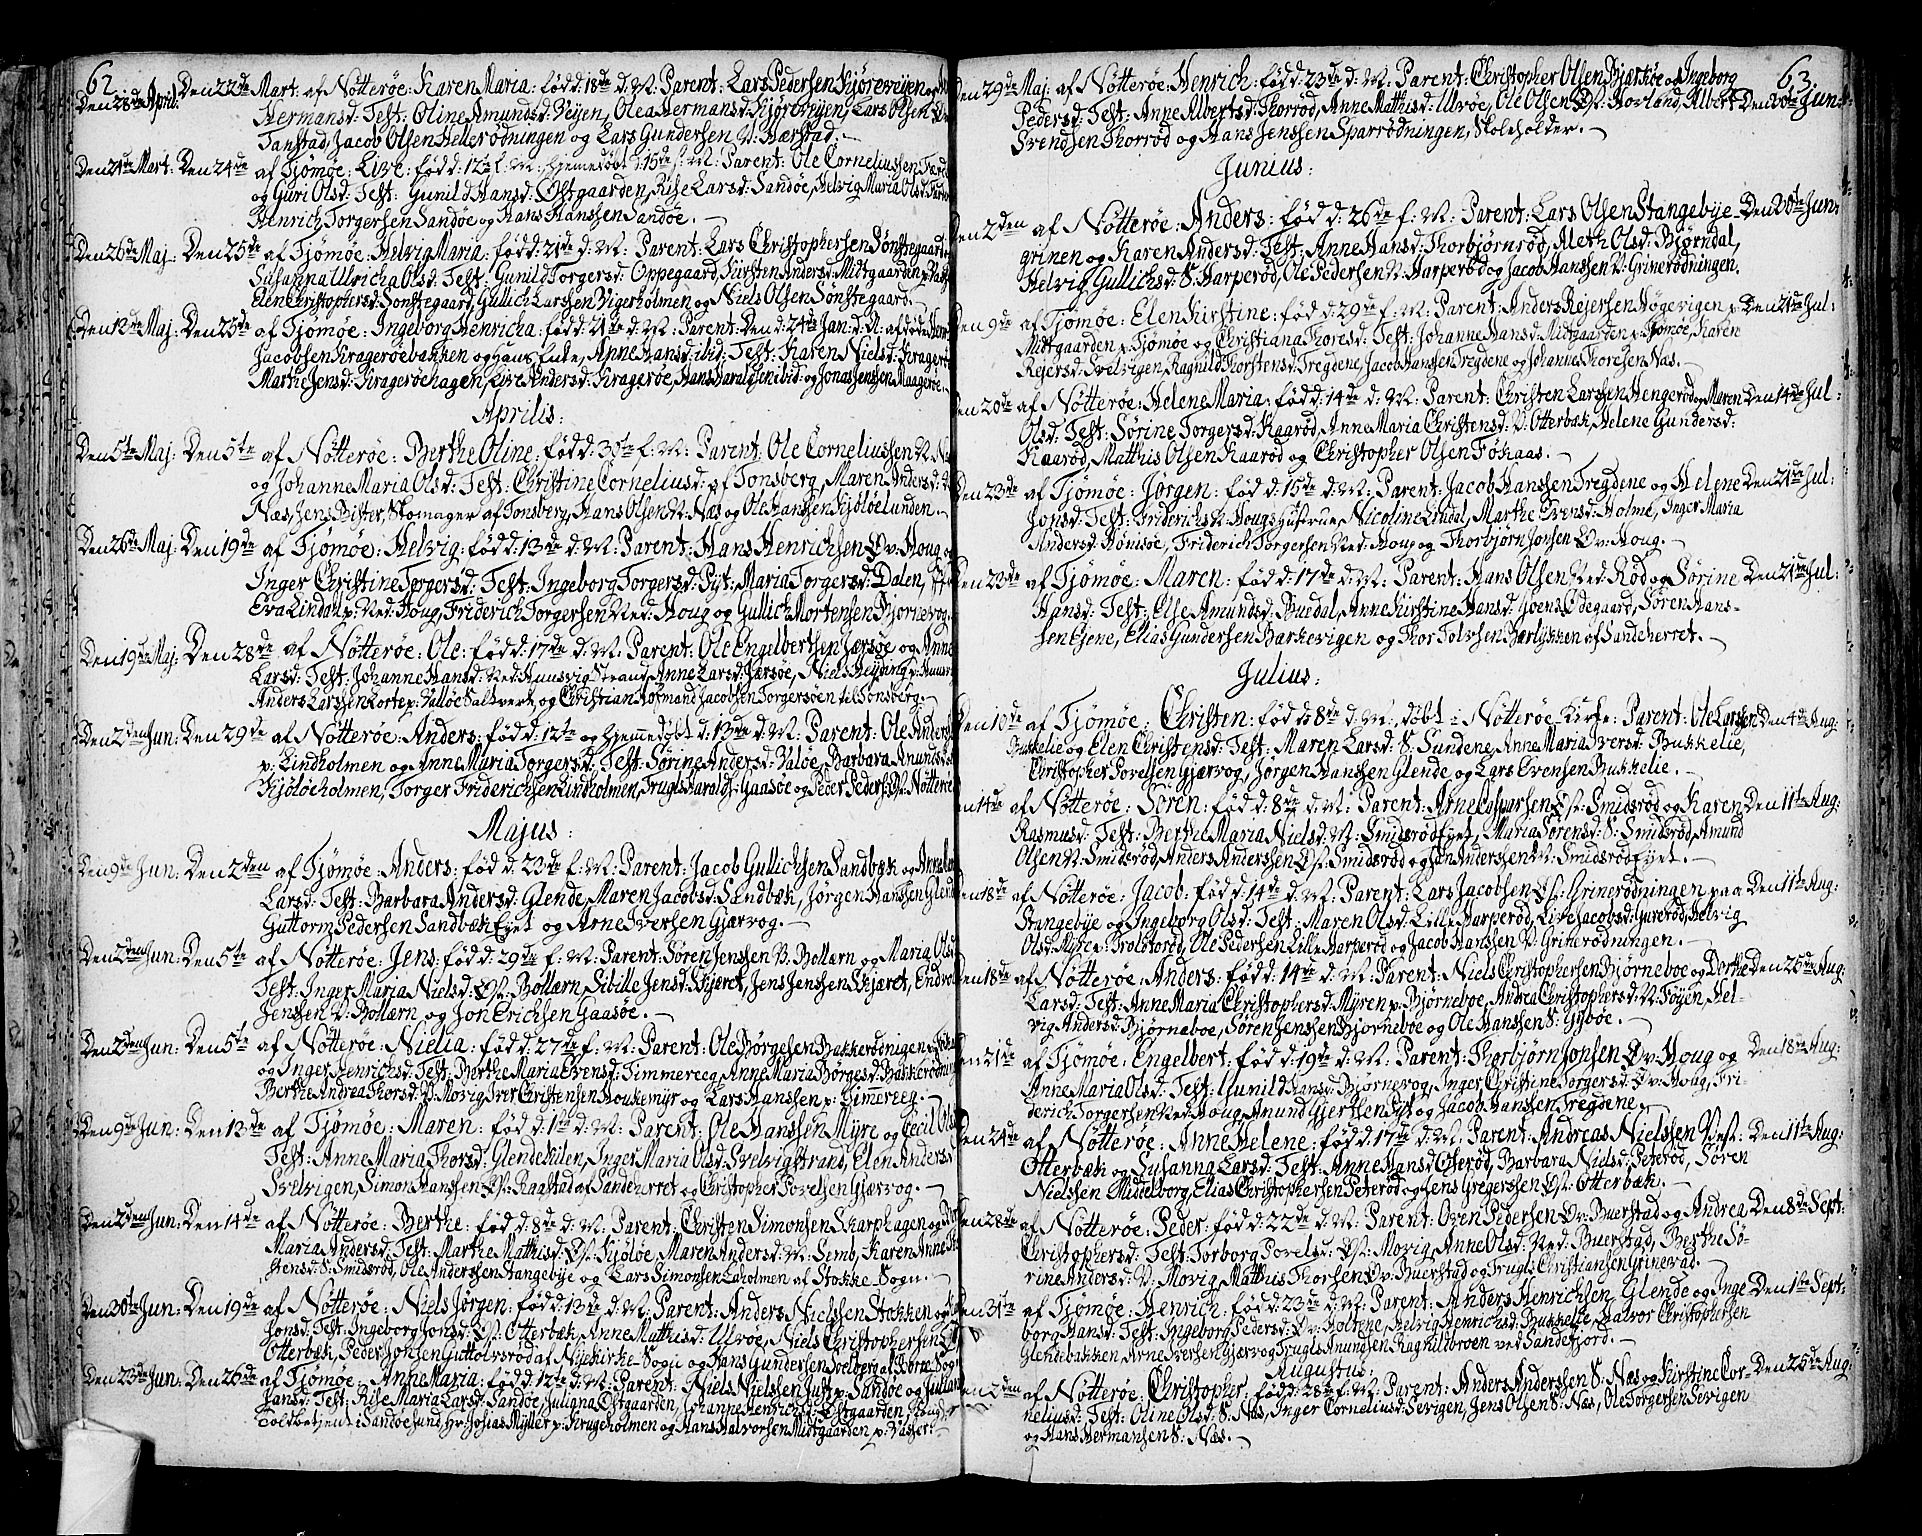 62
Den 28de April: Den 22de Mart: af Nötteröe: Karen Maria: född: 18de d: M: Parent: Lars Pedersen Kjöreveijen og
Hermansd: Test: Oline Amundsd: Veijen, Olea Hermansd: Kjöreveijen, Lars Olsen
Tanstad, Jacob Olsen Hellerödningen og Lars Gundersen V: Bærstad.
Den 21de Mart: Den 24de af Tjömöe: Live: född: 12te f: M: hjemmedöbt d: 15de f: M: Parent: Ole Corneliussen
og Guri Olsd: Test: Gunild Hansd: Östgaarden, Rise Larsd: Sandöe, Helvig Maria Olsd:
Henrich Torgersen Sandöe og Hans Hanssen Sandöe.
Den 26de Maj: Den 25de af Tjömöe: Helvig Maria: född: 21de d: M: Parent: Lars Christophersen Sönstegaard
Susanna Ulricha Olsd: Test: Gunild Torgersd: Oppegaard, Kirsten Andersd: Midtgaarden p:
Elen Christophersd: Sönstegaard, Gullich Larssen Vigerholmen og Niels Olsen Sönstegaard.
Den 12te Maj: Den 25de af Tjömöe: Ingeborg Henricha: född: 21de d: M: Parent: Den d: 24de Jan: d: A: afdöde
Jacobsen Krageröebakken og hans Enke, Anne Hansd: ibid: Test: Karen Nielsd: Krageröe
Marthe Jensd: Krageröehagen, Live Andersd: Krageröe, Hans Haralsen ibid: og Jonas Jenssen Maageröe.
Aprilis:
Den 5te Maj: Den 5te af Nötteröe: Berthe Oline: född: 30te f: M: Parent: Ole Corneliussen N:
og Johanne Maria Olsd: Test: Christine Corneliusd: af Tonsberg, Maren Andersd:
Næs, Jens Bister, Skomager af Tonsberg, Hans Olsen N: Næs og Ole Hansen Kjölöelunden.
Den 26de Maj: Den 19de af Tjömöe: Helvig: född: 13de d: M: Parent: Hans Henrichsen Öv: Houg
Inger Christine Torgersd: Test: Ingeborg Torgersd: Pyt, Maria Torgersd: Dalen,
Eva Lindahl p: Ned: Houg, Friderich Torgersen Ned: Houg og Gullich Mortensen Bjornevog.
Den 19de Maj: Den 28de af Nötteröe: Ole: född: 17de d: M: Parent: Ole Engelbertsen Jærsöe og Anne
Larsd: Test: Johanne Hansd: Ned: Hunsvig Strand, Anne Larsd: Jærsöe, Niels Heyding p:
Anders Larssen Korte p: Vallöe Saltverk og Christian Hofmand Jacobsen Torgersöen til Tonsberg.
Den 2den Jun: Den 29de af Nötteröe: Anders: född: 12te og hjemmedöbt d: 13de d: M: Parent: Ole Anders
p: Lindholmen og Anne Maria Torgersd: Test: Sörine Andersd: Valöe, Barbara Anundsd:
Kjölöeholmen, Torger Friderichsen Lindholmen, Trugls Haralds: Gaasöe og Peder Peders: V: Nötteröe
Majus:
Den 9de Jun: Den 2den af Tjömöe: Anders: född: 23de f: M: Parent: Jacob Gullichsen Sandbæk og Anne
Larsd: Test: Barbara Andersd: Glende, Maren Jacobsd: Sandbæk, Jörgen Hanssen Glende
Guttorm Pedersen Sandbæk Eyet og Arne Iversen Gjærvog.
Den 2den Jun: Den 5te af Nötteröe: Jens: född: 29de f: M: Parent: Sören Jenssen V: Bollærn og Maria Ols
Test: Inger Maria Nielsd: Öst: Bollærn, Sibille Jensd: Skjæret, Jens Jenssen Skjæret, Endre
Jenssen V: Bollærn og Jon Erichsen Gaasöe.
Den 2den Jun: Den 5te af Nötteröe: Nielia: född: 27de f: M: Parent: Ole Börgesen Bakkerödningen
og Inger Henrichsd: Test: Berthe Maria Evensd: Timmereeg, Anne Maria Börgesd: Bakkerödning
Berthe Andrea Thorsd: V: Morvig, Iver Christensen Houkemyr og Lars Hanssen p: Timereeg.
Den 9de Jun: Den 13de af Tjömöe: Maren: född: 1ste d: M: Parent: Ole Hanssen Myre og Cecil
Test: Anne Maria Thorsd: Glendekilen, Inger Maria Olsd: Svelvigstrand, Elen Anders
Svelvigen, Simon Hanssen Öst: Ragstad af Sandeherret og Christopher Povelsen Gjærvog.
Den 2den Jun: Den 14de af Nötteröe: Berthe: född: 8de d: M: Parent: Christen Simonsen Skarphagen og
Maria Andersd: Test: Marthe Mathisd: Öst: Kjölöe, Maren Andersd: N: Semb, Karen Anne
stensd: S: Smidsröd, Ole Anderssen Stangebÿe og Lars Simonsen Laholmen af Stokke Sogn.
Den 30te Jun: Den 19de af Nötteröe: Niels Jörgen: född: 13de d: M: Parent: Anders Nielssen Stokken og
Jonsd: Test: Ingeborg Jonsd: Öst: Otterbæk, Anne Mathisd: Ulvöe, Niels Christophersen
Otterbæk, Peder Jonsen Guttolvsröd af Nijekirke Sogn og Hans Gundersen Solberg af Borre Sogn
Den 23de Jun: Den 26de af Tjömöe: Anne Maria: född: 12te d: M: Parent: Niels Nielssen Just p: Sandöe og Julian
Jansd: Test: Rise Maria Larsd: Sandöe, Juliana Östgaarden, Johanne Henrichsd: Östgaarden,
Toldbetjent i Sandösund, Hr: Johias Myller p: Krugeholmen og Hans Halvorsen Midtgaarden p: Vasser.
63
Den 29de Maj: af Nötteröe: Henrich: född: 23de d: M: Parent: Christopher Olsen Bjærköe og Ingeborg Den 30te Jun:
Pedersd: Test: Anne Albertsd: Thorröd, Anne Mathisd: Ulvöe, Ole Olsen V: Horland, Albert
Svendsen Thorröd og Hans Jenssen Sparrödningen, Skoleholder.
Junius:
Den 2den af Nötteröe: Anders: född: 26de f: M: Parent: Lars Olsen Stangebÿe- Den 30te Jun:
grinen og Karen Andersd: Test: Anne Hansd: Thorbjörnröd, Aleth Olsd: Bjørndal,
Helvig Gullichsd: S: Harperöd, Ole Pedersen N: Harperöd og Jacob Hanssen V: Grinerödningen.
Den 9de af Tjömöe: Elen Kirstine: född: 29de f: M: Parent: Anders Rejersen Högevigen p: Den 21de Jul:
Midtgaarden p: Tjömöe og Christiana Thoresd: Test: Johanne Hansd: Midtgaarden p: Tjömöe, Karen
Rejersd: Svelvigen, Ragnild Thorstensd: Tregdene, Jacob Hansen Tregdene og Johannes Thoresen Næs.
Den 20de af Nötteröe: Helene Maria: född: 14de d: M: Parent: Christen Larssen Hengeröd og Maren Den 14de Jul:
Olsd: Test: Sörine Torgersd: Kaaröd, Anne Maria Christensd: V: Otterbæk, Helene Gundersd:
Kaaröd, Matthis Olsen Kaaröd og Christopher Olsen Fökaas.
Den 23de af Tjömöe: Jørgen: född: 15de d: M: Parent: Jacob Hanssen Tregdene og Helene Den 21de Jul:
Jonsd: Test: Friderichs N: Hougs Hustrue, Nicoline Lindal, Marthe Evensd: Holme, Inger Maria
Andersd: Hönisöe, Friderich Torgersen Ned: Houg og Thorbjörn Jonsen Öv: Houg.
Den 23de af Tjömöe: Maren: född: 17de d: M: Parent: Hans Olsen Ned: Röd og Sörine Den 21de Jul:
Hansd: Test: Else Amundsd: Buedal, Anne Kirstine Hansd: Goens Ödegaard, Sören Hans-
sen Ejene, Elias Gundersen Barkevigen og Thor Tolvsen Bærlykken af Sandeherret.
Julius:
Den 10de af Tjömöe: Christen: född: 8de d: M: döbt i Nötteröe Kirke: Parent: Ole Larssen Den 4de Aug:
Bukkelie og Elen Christensd: Test: Maren Larsd: S: Sundene, Anne Maria Iversd: Bukkelie,
Christopher Povelsen Gjærvog, Jörgen Hanssen Glende og Lars Evensen Bukkelie.
Den 14de af Nötteröe: Sören: född: 8de d: M: Parent: Arne Casparsen Öst: Smidsröd og Karen Den 11te Aug:
Rasmusd: Test: Berthe Maria Nielsd: N: Smidsröd Eyet, Maria Sörensd: S: Smidsröd, Amund
Olsen N: Smidsröd, Anders Anderssen Öst: Smidsröd og Jan Anderssen N: Smidsröd Eyet.
Den 18de af Nötteröe: Jacob: född: 14de d: M: Parent: Lars Jacobsen Öst: Grinerödningen paa Den 11te Aug:
Stangebÿe og Ingeborg Olsd: Test: Maren Olsd: Lille Harperöd, Live Jacobsd: Gureröd, Helvig
Olsd: Myre p: Brolotoröd, Ole Pedersen Lille Harperöd og Jacob Hanssen V: Grinerödningen.
Den 18de af Nötteröe: Anders: född: 14de d: M: Parent: Niels Christophersen Bjørneboe og Dorthe Den 25de Aug:
Larsd: Test: Anne Maria Christophersd: Myren p: Bjørneboe, Andrea Christophersd: N: Föÿen, Hel-
vig Andersd: Bjørneboe, Sören Jenssen Bjørneboe og Ole Hanssen S: Gipöe.
Den 21de af Tjömöe: Engelbert: född: 19de d: M: Parent: Thorbjørn Jonsen Öv: Houg og Den 18de Aug:
Anne Maria Olsd: Test: Gunild Hansd: Bjørnevog, Inger Christine Torgersd: Öv: Houg, Fri-
derich Torgersen Ned: Houg, Amund Gjertsen Pyt og Jacob Hanssen Tregdene.
Den 24de af Nötteröe: Anne Helene: född: 17de d: M: Parent: Andreas Nielssen Vest: Den 11te Aug:
Otterbæk og Susanna Larsd: Test: Anne Hansd: Oseröd, Barbara Nielsd: Peteröd, Sören
Nielssen Middelborg, Elias Christophersen Peteröd og Jens Gregerssen Öst: Otterbæk.
Den 28de af Nötteröe: Peder: född: 22de d: M: Parent: Oven Pedersen Öv: Buerstad og Andrea Den 8de Sept:
Christophersd: Test: Torborg Povelsd: Öst: Morvig, Anne Olsd: Ned: Buerstad, Berthe Sö-
rine Andersd: V: Morvig, Matthis Thorsen Öv: Buerstad og Trugls Christiansen Grineröd.
Den 31te af Tjömöe: Henrich: född: 23de d: M: Parent: Anders Henrichsen Glende og Inge Den 1ste Sept:
borg Hansd: Test: Ingeborg Pedersd: Öv: Holtene, Helvig Henrichsd: Bukkelie, Halvor Christophersen
Glendebakken, Arne Iversen Gjærvog, Trugls Anundsen Ragnhildbroen ved Sandefjord.
Augustus:
Den 2den af Nötteröe: Christopher: född: 28de f: M: Parent: Anders Anderssen S: Næs og Kirstine Cor- Den 25de Aug:
neliusd: Test: Oline Olsd: S: Næs, Inger Corneliusd: Sevigen, Jens Olsen S: Næs, Ole Torgersen Sevigen
og Hans Hermansen S: Næs.